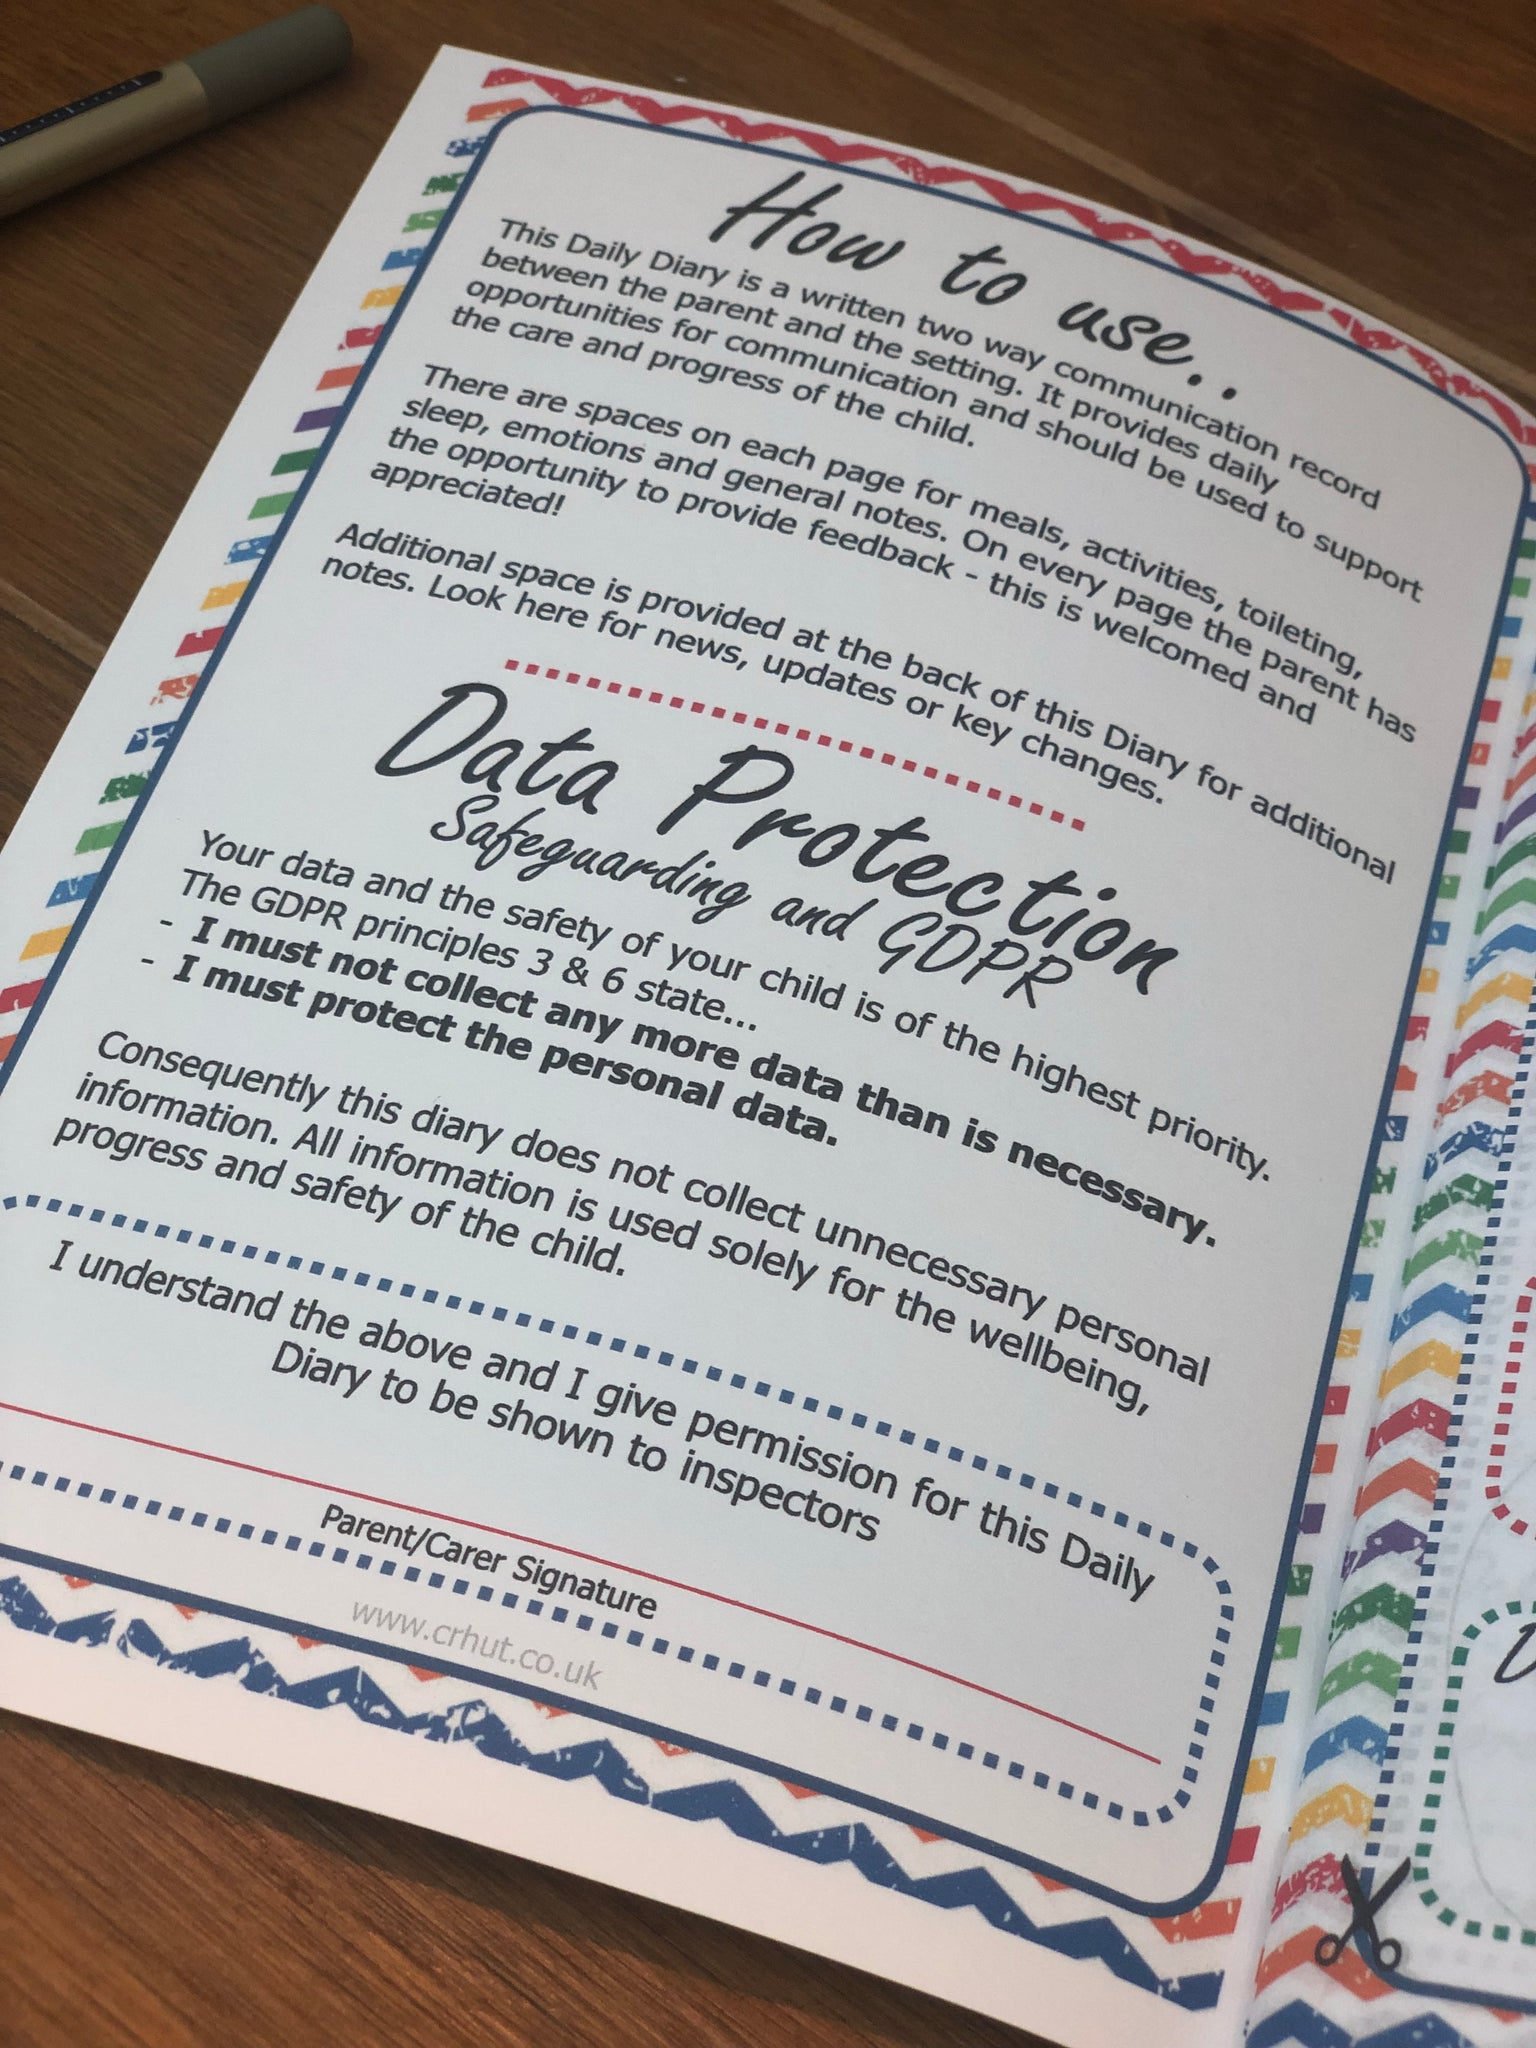 How to use..
This Daily Diary is a written two way communication record
between the parent and the setting. It provides daily
opportunities for communication and should be used to support
the care and progress of the child.
There are spaces on each page for meals, activities, toileting,
sleep, emotions and general notes. On every page the parent has
the opportunity to provide feedback - this is welcomed and
appreciated!
Additional space is provided at the back of this Diary for additional
notes. Look here for news, updates or key changes.
Data Protection
Safeguarding and GDPR
Your data and the safety of your child is of the highest priority.
The GDPR principles 3 & 6 state...
- I must not collect any more data than is necessary.
- I must protect the personal data.
Consequently this diary does not collect unnecessary personal
information. All information is used solely for the wellbeing,
progress and safety of the child.
I understand the above and I give permission for this Daily
Diary to be shown to inspectors
Parent/Carer Signature
www.crhut.co.uk